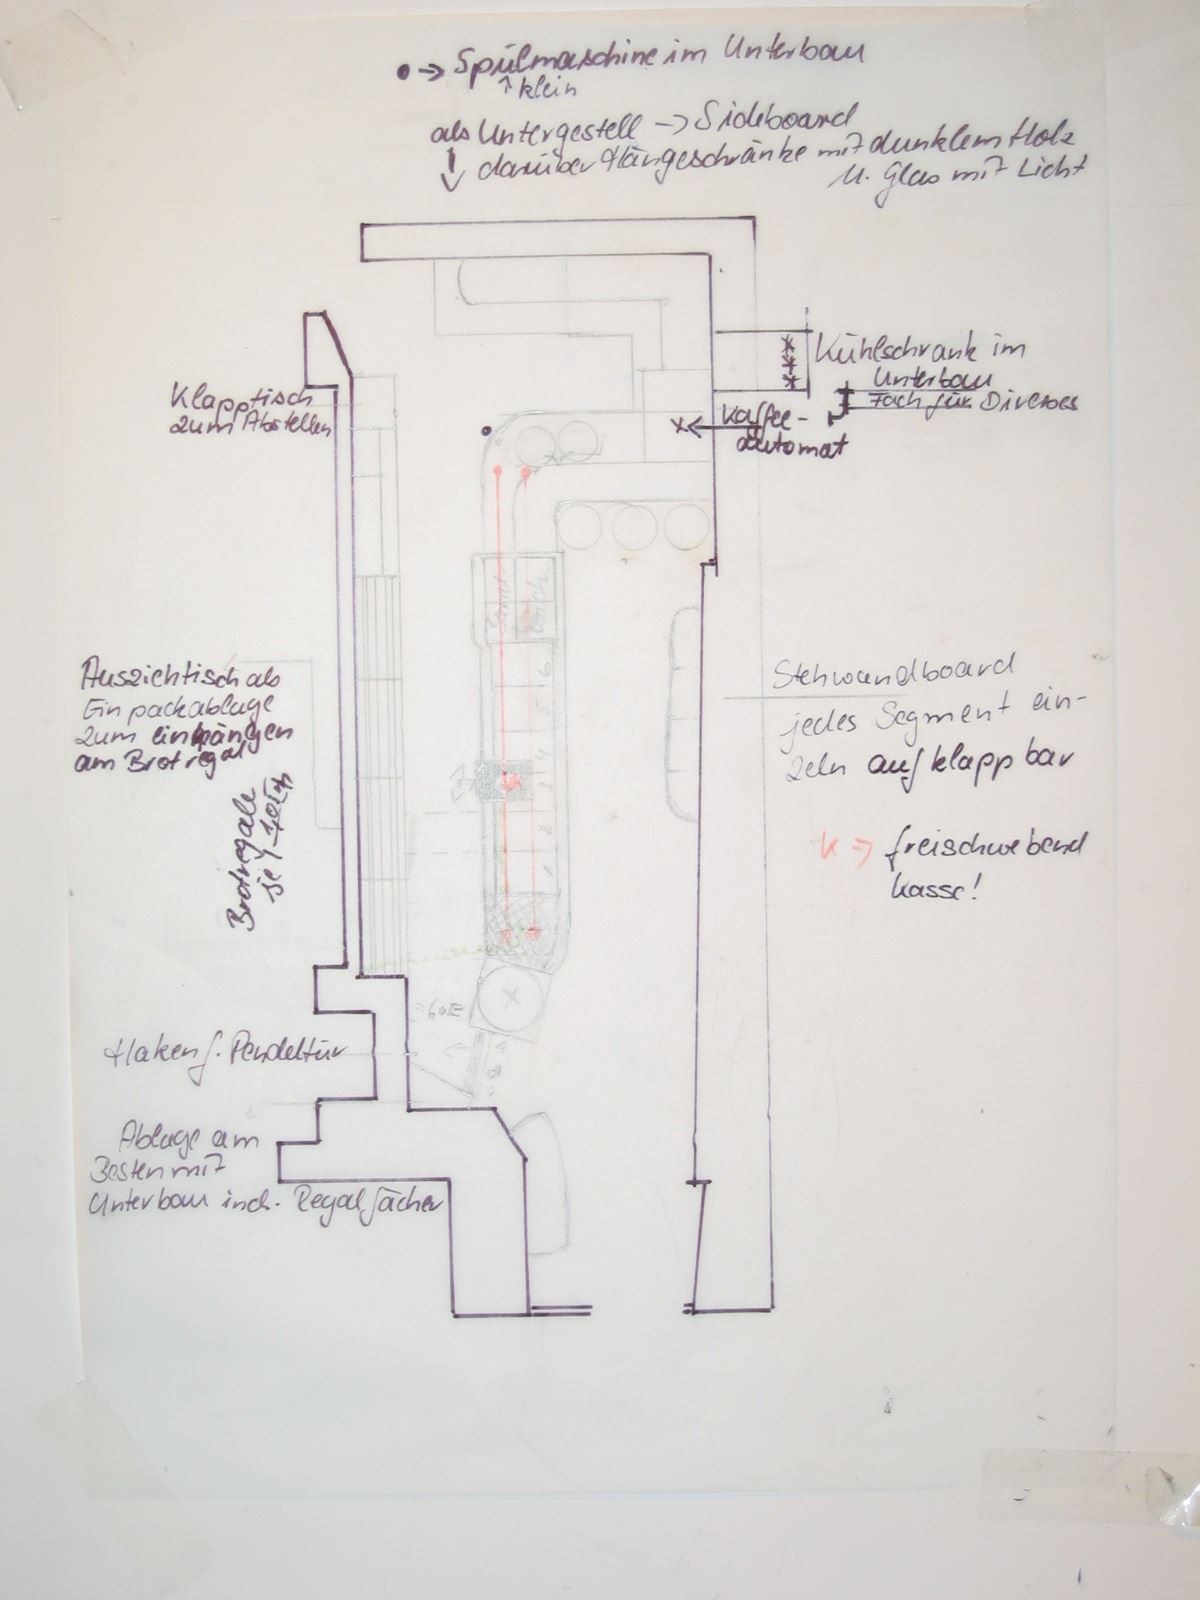 • → Spülmaschine im Unterbau
↑ klein
als Untergestell → Sideboard
↓ darüber Hängeschränke mit dunklem Holz
u. Glas mit Licht
Kühlschrank im
Unterbau
Fach für Diverses
Kaffee-
automat
Klapptisch
zum Abstellen
Ausziehtisch als
Einpackablage
zum einhängen
am Brotregal
Brotregale
je
6
5
4
Stehwandboard
jedes Segment ein-
zeln aufklappbar
K => freischwebend
Kasse!
Haken f. Pendeltür
Ablage am
Besten mit
Unterbau incl. Regalfächer